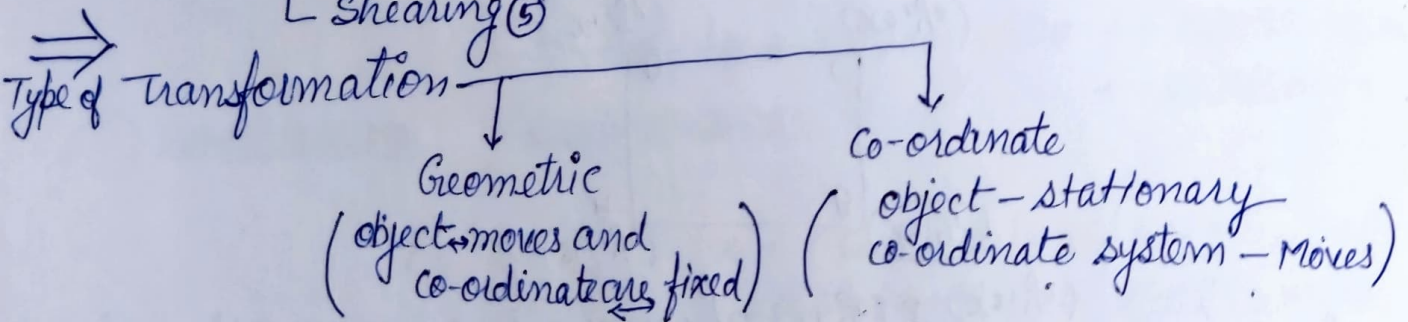 └ Shearing ⑤
⇒ Type of Transformation
Geometric
(object↔moves and
co-ordinate are fixed)
Co-ordinate
(object - stationary
co-ordinate system - Moves)